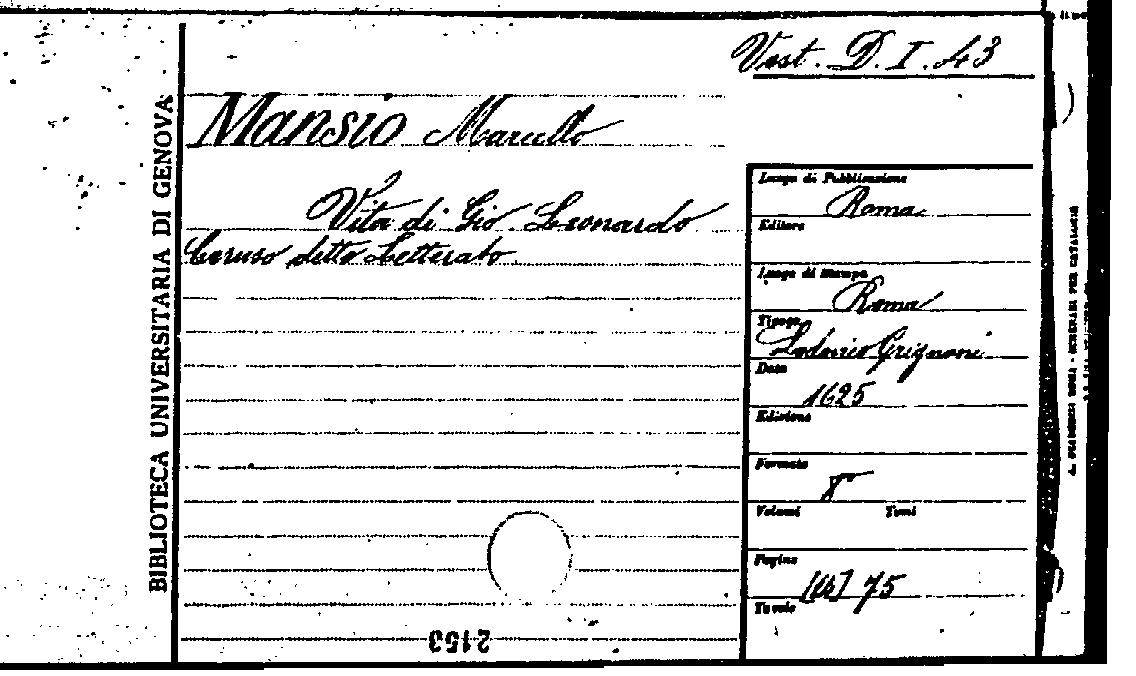 Vest. D. I. 43
Mansio Marcello
Vita di Gio. Leonardo
Ceruso detto Letterato.
BIBLIOTECA UNIVERSITARIA DI GENOVA
Luogo di Pubblicazione
Roma
Editore
Luogo di stampa
Roma
Tipogr.
Lodovico Grignani
Data
1625
Edizione
Formato
8°
Volumi Tomi
Pagine
75
Tavole
2153